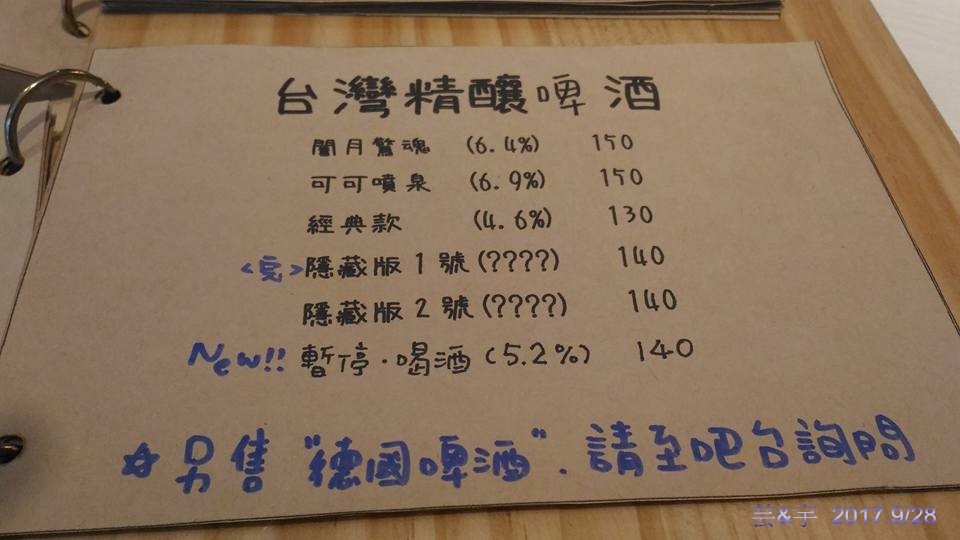 台灣精釀啤酒
闇月驚魂 (6.4%) 150
可可噴泉 (6.9%) 150
經典款 (4.6%) 130
<完>隱藏版1號(????) 140
隱藏版2號(????) 140
New!! 暫停·喝酒(5.2%) 140
☆另售"德國啤酒".請至吧台詢問
芸&宇 2017.9/28